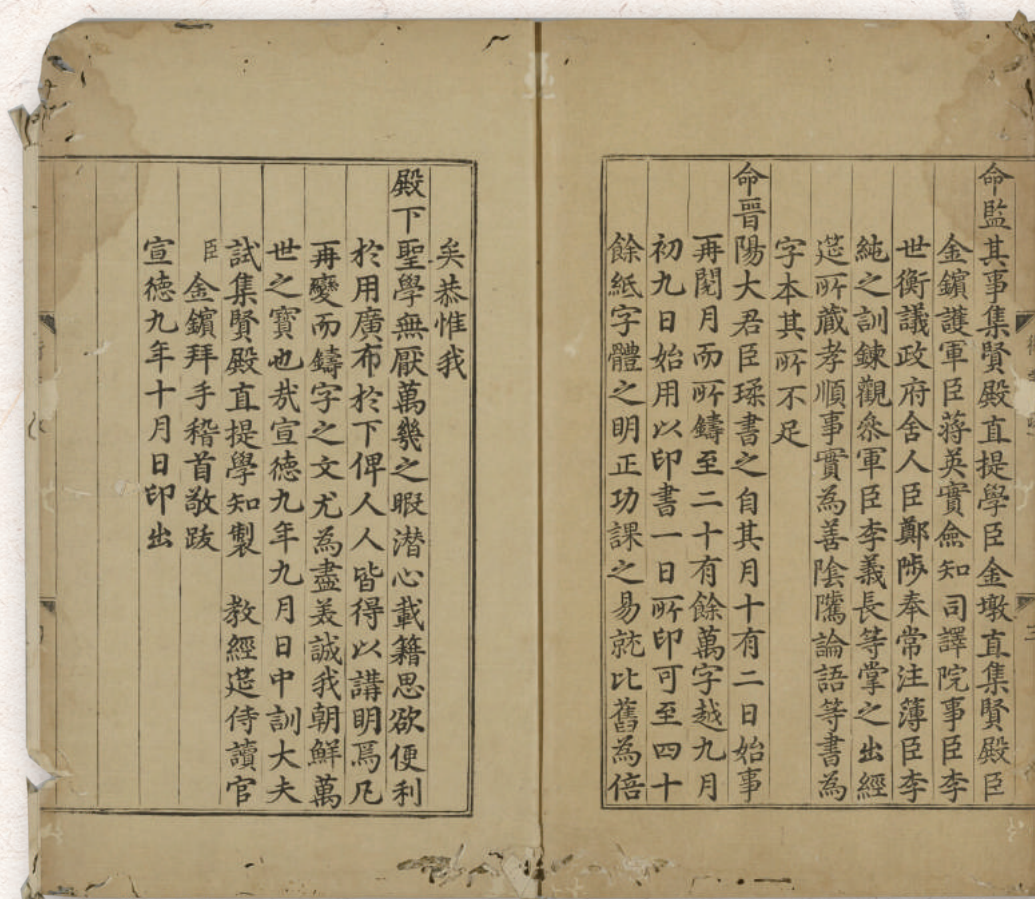 命監其事集賢殿直提學臣金墩直集賢殿臣
金鑌護軍臣蔣英實僉知司譯院事臣李
世衡議政府舍人臣鄭陟奉常注薄臣李
純之訓鍊觀叅軍臣李義長等掌之出經
筵所藏孝順事實為善陰騭論語等書為
字本其所不足
命晉陽大君臣瑈書之自其月十有二日始事
再閱月而所鑄至二十有餘萬字越九月
初九日始用以印書一日所印可至四十
餘紙字體之明正功課之易就比舊為倍
矣恭惟我
殿下聖學無厭萬幾之暇潜心載籍思欲便利
於用廣布於下俾人人皆得以講明焉凡
再變而鑄字之文尤為盡美誠我朝鮮萬
世之寶也㢤宣德九年九月日中訓大夫
試集賢殿直提學知製 教經筵侍讀官
臣金鑌拜手稽首敬跋
宣德九年十月日印出